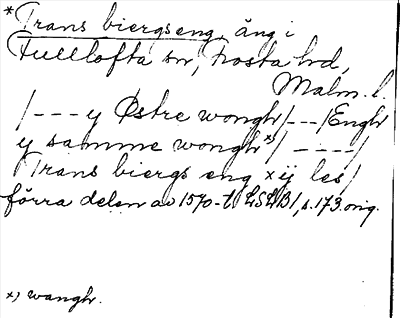 *Trans biergseng, äng i
Fulllöfta sn, Frosta hd,
Malm. l.
/--- y Østre wongh/---/Engh
y samme wongh x)/ ----/
Trans biergs eng x ÿ les/
förra delen av 1570-t. LSLB1, s. 173. orig.
x) wangh.